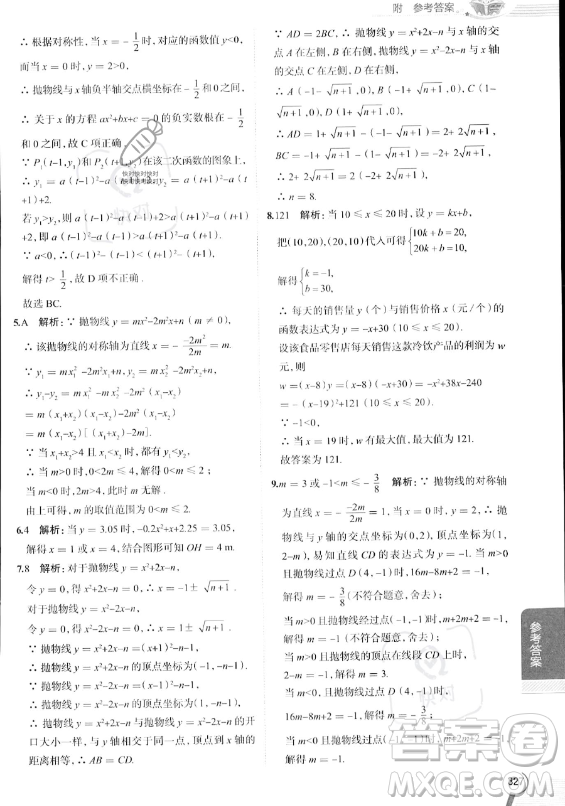 附 参考答案
∴ 根据对称性，当 x = -1/2 时，对应的函数值 y<0，
∴ 抛物线与 x 轴负半轴交点横坐标在 -1/2 和 0 之间，
∴ 关于 x 的方程 ax²+bx+c = 0 的负实数根在 -1/2
和 0 之间，故 C 项正确.
∵ P₁(t-1,y₁) 和 P₂(t+1,y₂) 在该二次函数的图象上，
∴ y₁ = a(t-1)²-a(t-1)+2，y₂ = a(t+1)²-a(t+1)+2.
若 y₁>y₂，则 a(t-1)²-a(t-1)+2>a(t+1)²-a(t+1)
+2，即 a(t-1)²-a(t-1)>a(t+1)²-a(t+1).
∵ a<0，∴ (t-1)²-(t-1)<(t+1)²-(t+1)，
解得 t>1/2，故 D 项不正确.
故选 BC.
5.A 解析：∵ 抛物线 y = mx²-2m²x+n（m ≠ 0），
∴ 该抛物线的对称轴为直线 x = - -2m²/2m = m.
∴ y₁-y₂ = mx₁²-2m²x₁+n-(mx₂²-2m²x₂+n)
= m(x₁+x₂)(x₁-x₂)-2m²(x₁-x₂)
= m(x₁-x₂)[(x₁+x₂)-2m].
∵ 当 x₁+x₂>4 且 x₁<x₂ 时，都有 y₁<y₂，
∴ 当 m>0 时，2m ≤ 4，解得 0<m ≤ 2.
当 m<0 时，2m>4，此时 m 无解.
由上可得，m 的取值范围为 0<m ≤ 2.
6.4 解析：当 y = 3.05 时，-0.2x²+3.5 = 3.05，
解得 x = 或 x = ，结合图形可知 OH = 4 m.
7.8 解析：对于抛物线 y = x²+2x-n，
令 y = 0，得 x²+2x-n = 0，∴ x = -1± √n+1.
对于抛物线 y = x²-2x-n，
令 y = 0，得 x²-2x-n = 0，∴ x = 1± √n+1.
∵ 抛物线 y = x²+2x-n =(x+1)²-n-1，
∴ 抛物线 y = x²+2x-n 的顶点坐标为(-1,-n-1).
∵ 抛物线 y = x²-2x-n =(x-1)²-n-1，
∴ 抛物线 y = x²-2x-n 的顶点坐标为(1,-n-1)，
∴ 抛物线 y = x²+2x-n 与抛物线 y = x²-2x-n 的开
口大小一样，与 y 轴的交点相同，顶点的纵坐标相
同，则有 AB = CD.
∵ AD = 2BC，抛物线 y = x²+2x-n 与 x 轴的交
点 A 在 B 左侧，抛物线 y = x²-2x-n 与 x 轴
的交点 C 在 D 左侧，
∴ A(-1- √n+1,0)，B(-1+ √n+1,0)，C(1-
√n+1,0)，D(1+ √n+1,0)，
∴ AD = 1+ √n+1-(-1- √n+1)= 2+2 √n+1，
BC = -1+ √n+1-(1- √n+1)= -2+2 √n+1，
∴ 2+2 √n+1 = 2(-2+2 √n+1)，
∴ n = 8.
8.121 解析：当 10 ≤ x ≤ 20 时，设 y = kx+b，
把(10,20)，(20,10)代入可得{10k+b = 20, 20k+b = 10,
解得{k = -1, b = 30,
∴ 每天的销售量 y（件）与销售价格 x（元/件）的
函数表达式为 y = -x+30（10 ≤ x ≤ 20）.
设该食品零售店每天销售这款冷饮产品的利润为 w
元，则
w =(x-8)y =(x-8)(-x+30)= -x²+38x-240
= -(x-19)²+121.
∵ -1<0，
∴ 当 x = 19 时，w 有最大值，最大值为 121.
故答案为 121.
9.m = 3 或 -1<m<- 3/8 解析：∵ 抛物线的对称轴
为直线 x = - -2m/2m = 1，当 x = 0 时，y = 2，∴ 抛物
线与 y 轴的交点坐标为(0,2)，顶点坐标为(1,
2-m)，易知直线 CD 的表达式为 y = -1.
当 m>0 时，
当抛物线过点 D(4,-1) 时，16m-8m+2 = -1，解得
m = - 3/8（不符合题意，舍去）；
当抛物线经过点 (-1,-1) 时，m+2m+2 = -1，
解得 m = -1（不符合题意，舍去）；
当抛物线的顶点在线段 CD 上时，2-m = -1，
解得 m = 3.
当 m<0 时，
当抛物线过点 D(4,-1) 时，
16m-8m+2 = -1，解得 m = - 3/8；
参考答案
327
快对快对快对
答案圈
MXQE.COM